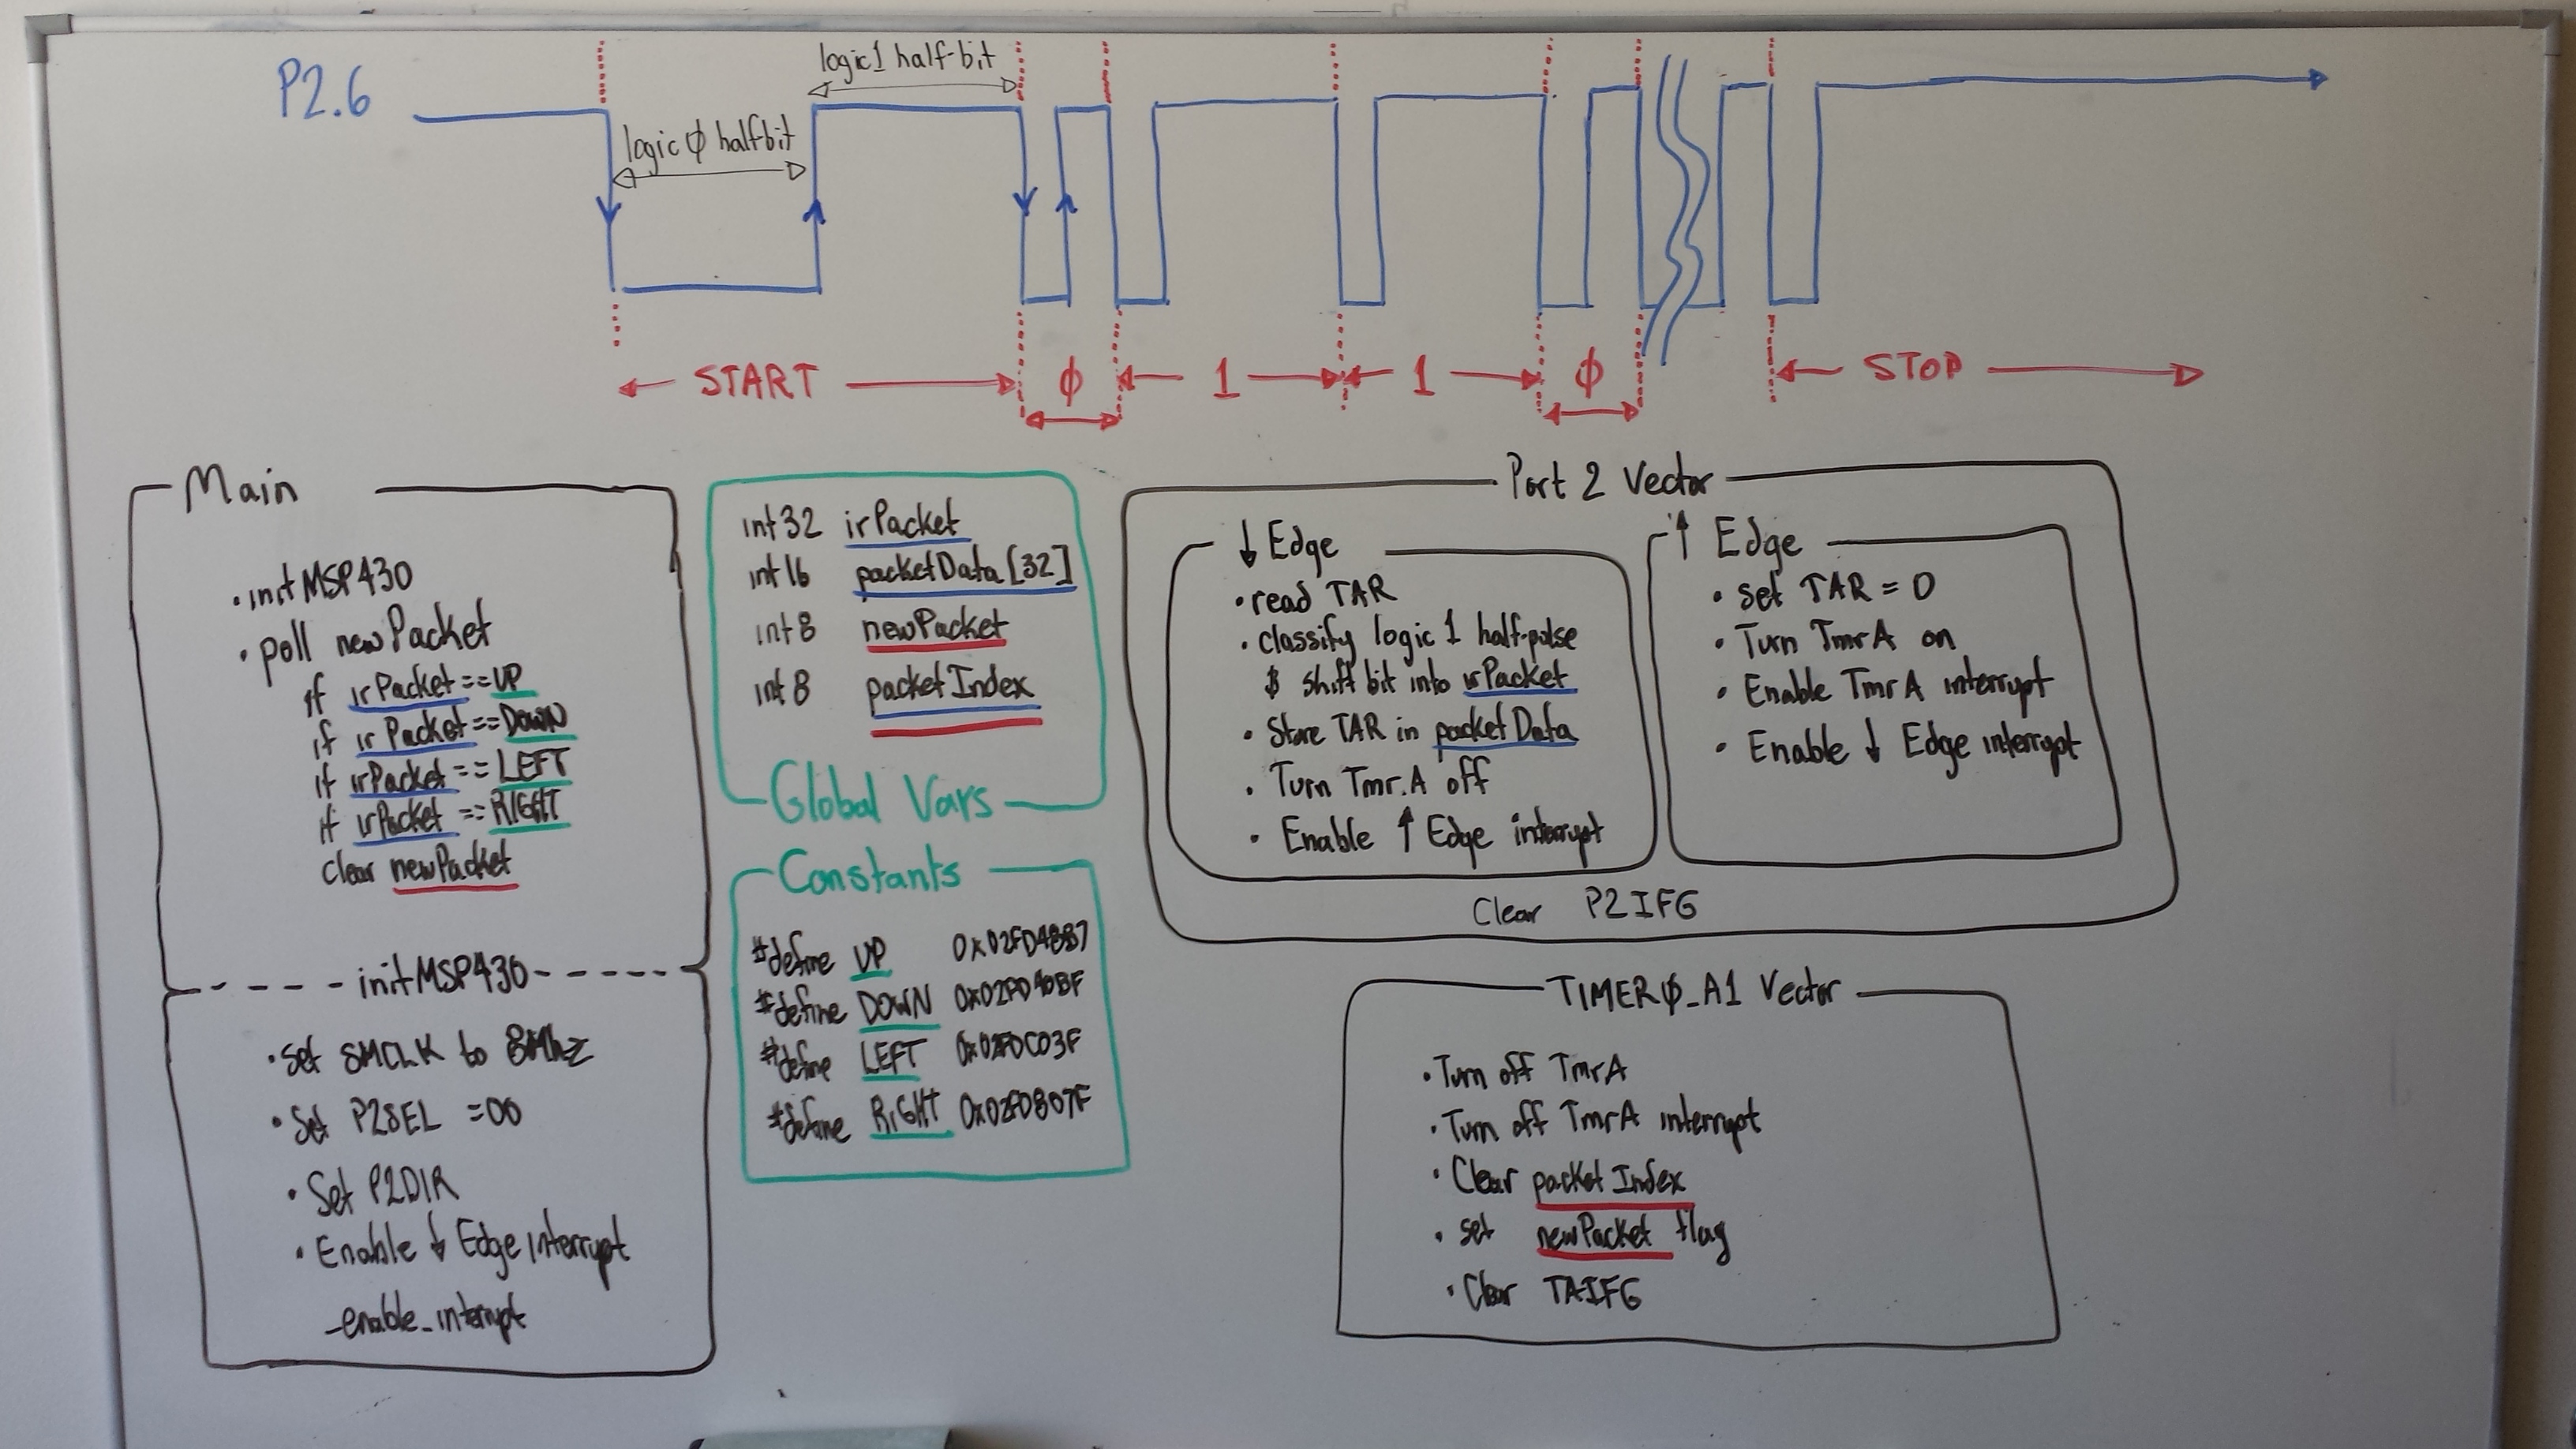 P2.6
logic1 half-bit
logic ϕ halfbit
START
ϕ
1
1
ϕ
STOP
Main
• init MSP430
• poll newPacket
if irPacket==UP
if irPacket==DOWN
if irPacket==LEFT
if irPacket==RIGHT
clear newPacket
initMSP430
• Set SMCLK to 8Mhz
• Set P2SEL =00
• Set P2DIR
• Enable ↓ Edge interrupt
_enable_interrupt
int32 irPacket
int16 packetData[32]
int8 newPacket
int8 packetIndex
Global Vars
Constants
#define UP 0x02FD48B7
#define DOWN 0x02FD40BF
#define LEFT 0x02FDC03F
#define RIGHT 0x02FD807F
Port 2 Vector
↓ Edge
• read TAR
• classify logic 1 half-pulse
$ shift bit into irPacket
• Store TAR in packetData
• Turn Tmr.A off
• Enable ↑ Edge interrupt
↑ Edge
• set TAR = 0
• Turn TmrA on
• Enable TmrA interrupt
• Enable ↓ Edge interrupt
Clear P2IFG
TIMERϕ_A1 Vector
• Turn off TmrA
• Turn off TmrA interrupt
• Clear packetIndex
• set newPacket flag
• Clear TAIFG